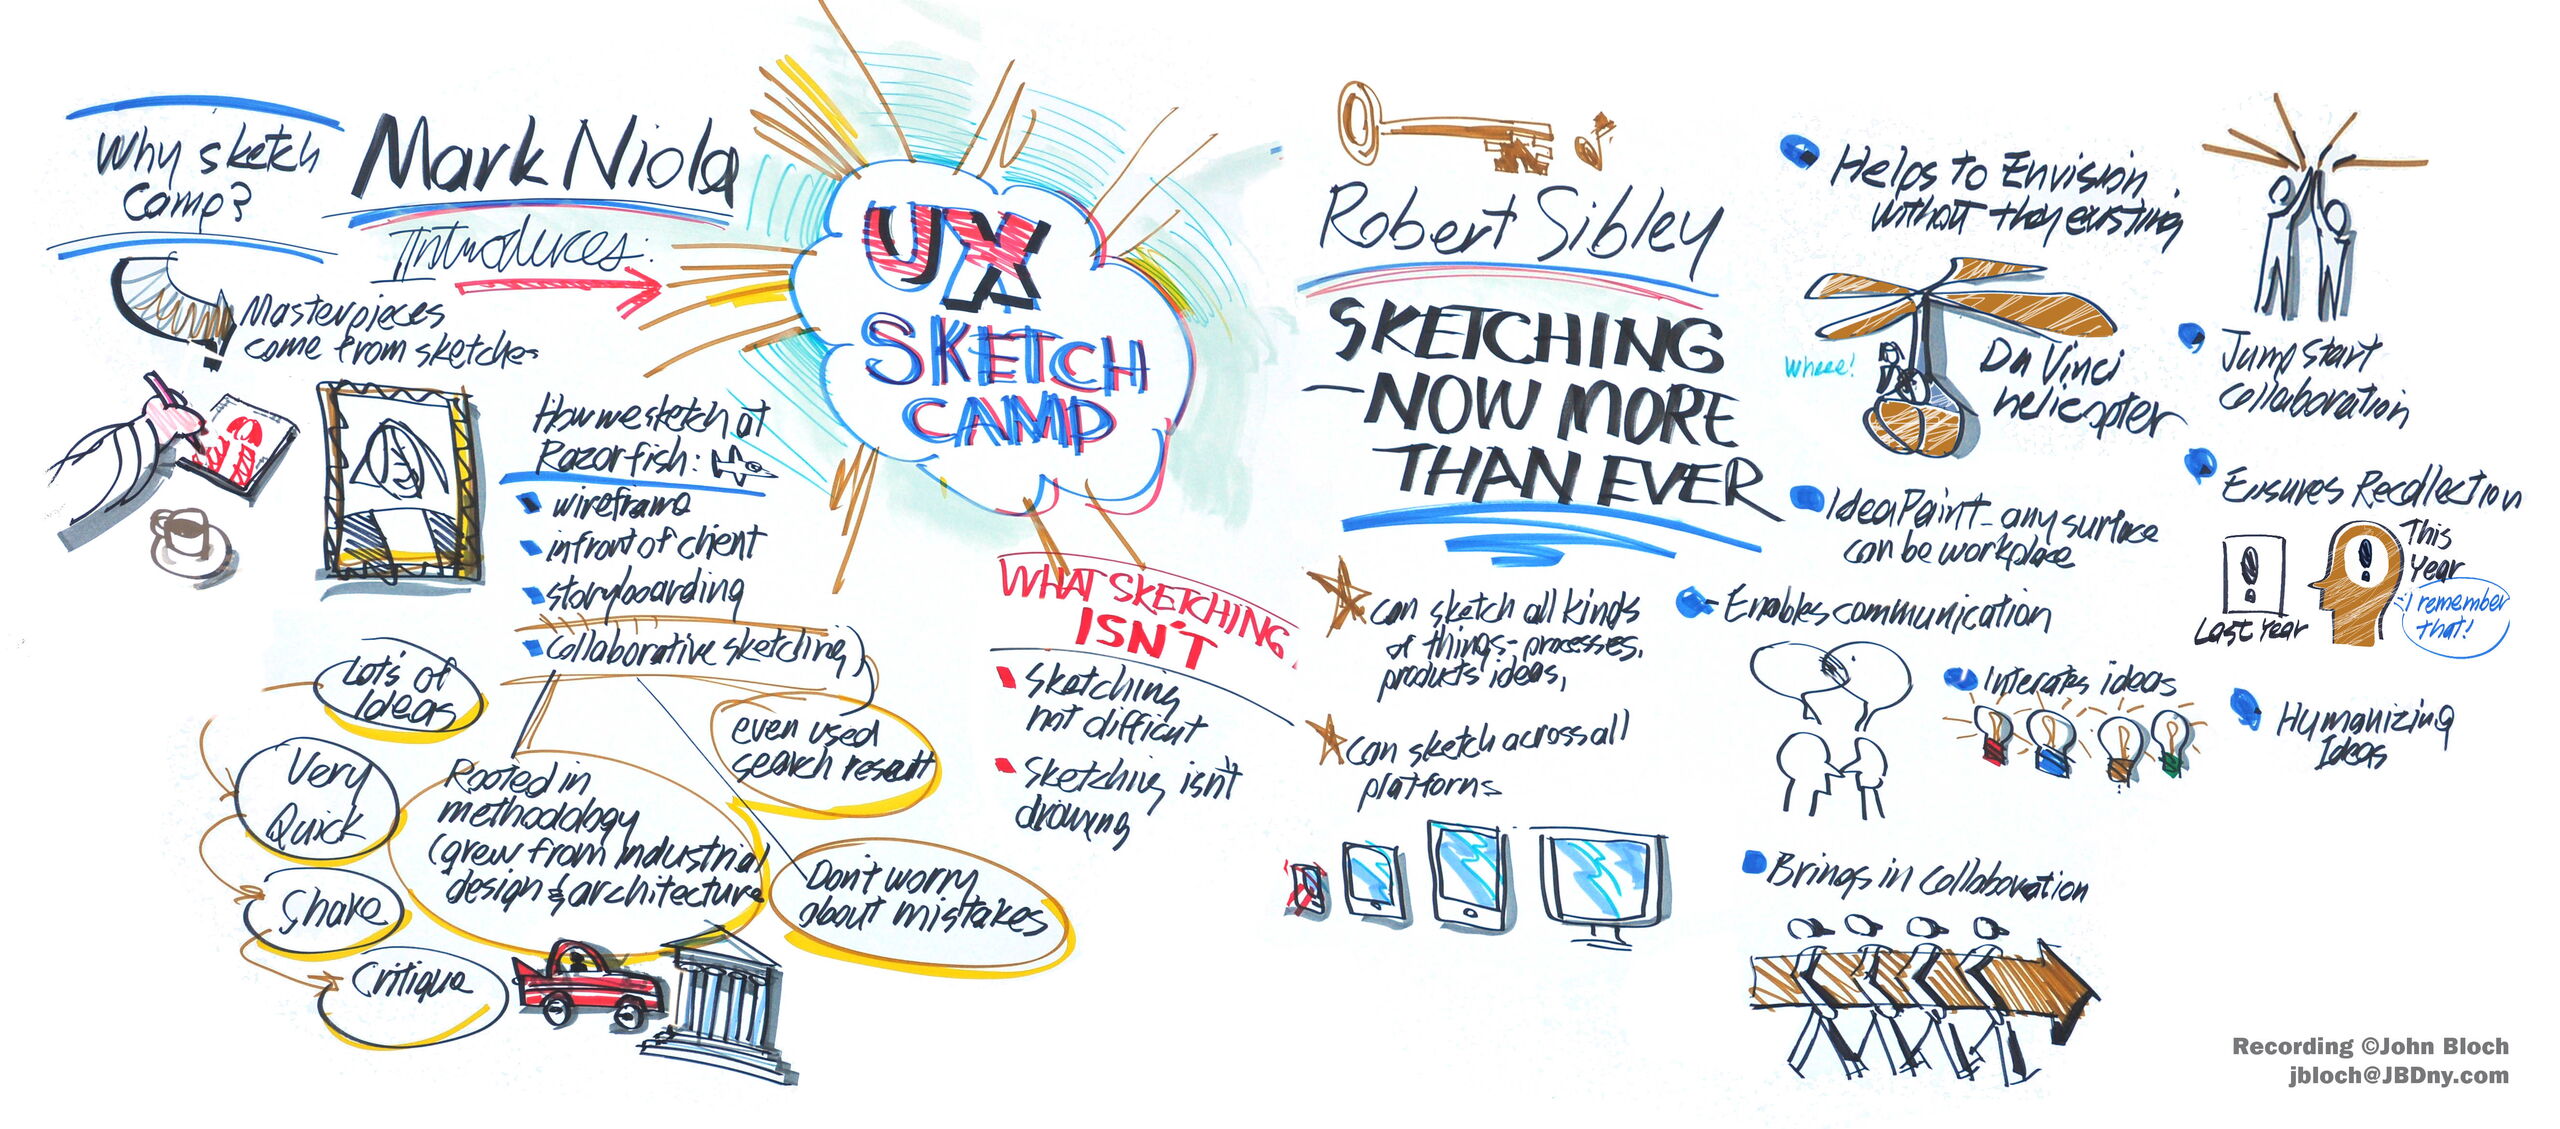 Why sketch
Camp?
Mark Niola
Introduces:
UX
SKETCH
CAMP
Masterpieces
come from sketches
How we sketch at
Razorfish:
wireframe
infront of client
storyboarding
collaborative sketching
Lot's of
Ideas
Very
Quick
Share
Critique
Rooted in
methodology
(grew from industrial
design & architecture
even used
search result
Don't worry
about mistakes
WHAT SKETCHING
ISN'T
Sketching
not difficult
Sketching isn't
drawing
Robert Sibley
SKETCHING
-NOW MORE
THAN EVER
can sketch all kinds
of things-processes,
products ideas,
can sketch across all
platforms
Helps to Envision
without they existing
wheee!
Da Vinci
helicopter
IdeaPaint-any surface
can be workplace
Enables communication
Interates ideas
Brings in collaboration
Jumpstart
collaboration
Ensures Recollection
This
Year
Last Year
I remember
that!
Humanizing
Ideas
Recording ©John Bloch
jbloch@JBDny.com